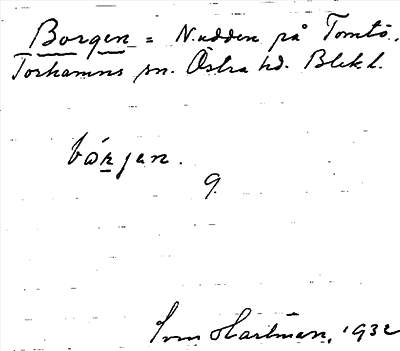 Borgen = N. udden på Tomtö.
Torhamns sn. Östra hd. Blek l.
börjen.
9.
Sven Hartman, 1932